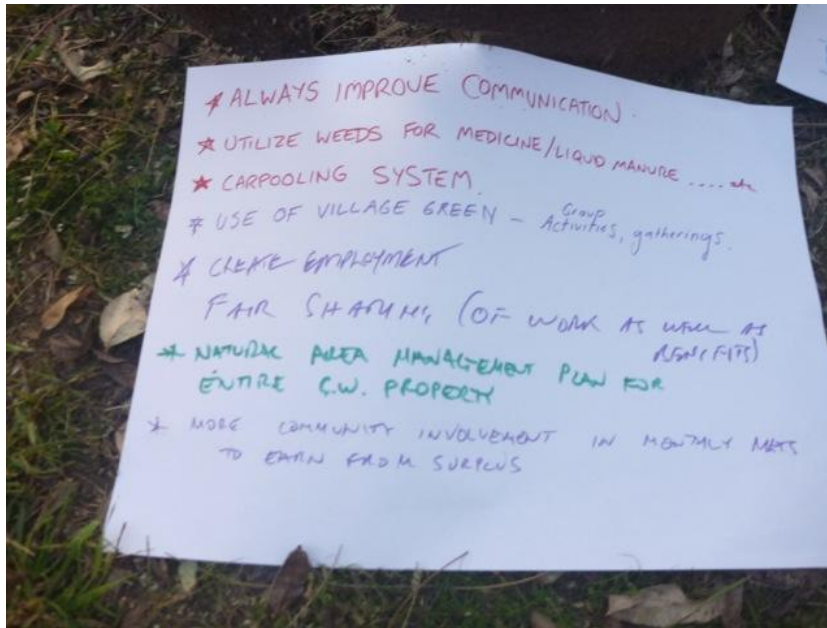 * ALWAYS IMPROVE COMMUNICATION.
* UTILIZE WEEDS FOR MEDICINE/LIQUID MANURE .... etc
* CARPOOLING SYSTEM.
* USE OF VILLAGE GREEN – Group Activities, gatherings.
* CREATE EMPLOYMENT
FAIR SHARING (OF WORK AS WELL AS
BENEFITS)
* NATURAL AREA MANAGEMENT PLAN FOR
ENTIRE C.W. PROPERTY
* MORE COMMUNITY INVOLVEMENT IN MONTHLY MKTS
TO EARN FROM SURPLUS